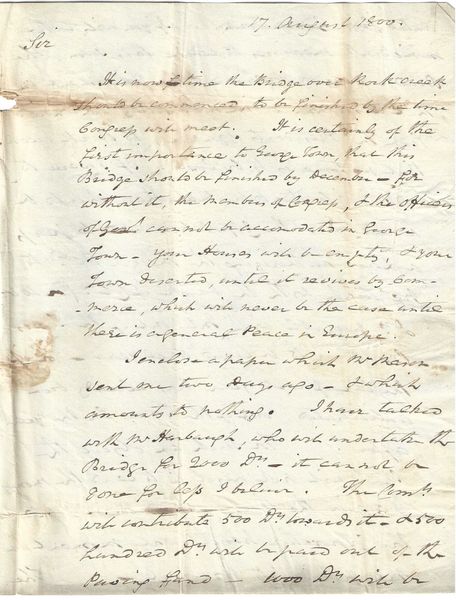 17. August 1800.
Sir
It is now time the Bridge over Rock Creek
should be commenced, to be finished by the time
Congress will meet. It is certainly of the
first importance to George Town, that this
Bridge should be finished by December - for
without it, the Members of Congress, & the officers
of Govt cannot be accomodated in George
Town - your Houses will be empty, & your
Town deserted, until it revives by Com-
-merce, which will never be the case until
there is a general Peace in Europe.
I enclose a paper which Mr Mason
sent me two days ago - & which
amounts to nothing. I have talked
with Mr Harbaugh, who will undertake the
Bridge for 2000 Drs - it can not be
done for less I believe. The
will contribute 500 Drs towards it - & 500
hundred Drs will be paid out of the
Paving Fund - 1000 Drs will be